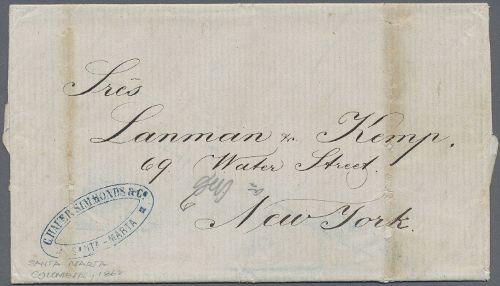 Sres
Lanman & Kemp.
69 Water Street.
New York.
G. HAUER SIMMONDS & Co.
SANTA-MARTA
SANTA MARTA
COLOMBIA, 1868